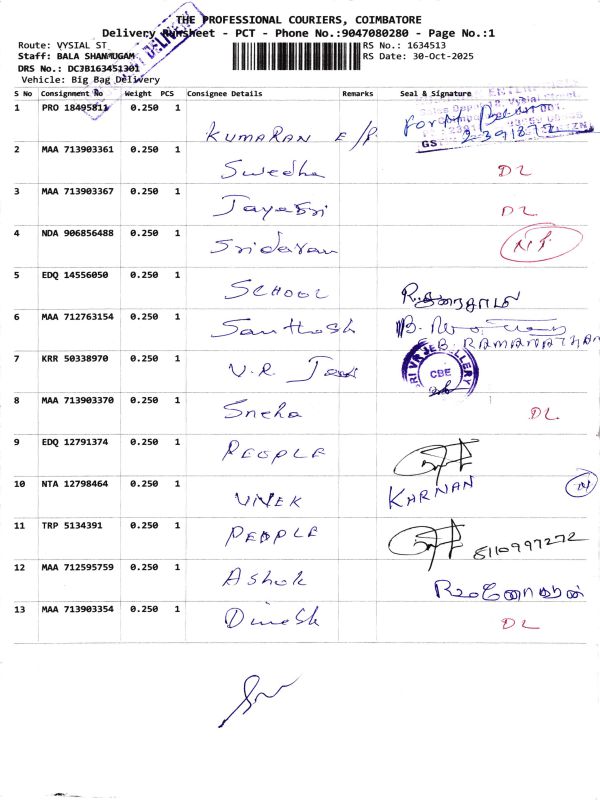 THE PROFESSIONAL COURIERS, COIMBATORE
Delivery Runsheet - PCT - Phone No.:9047080280 - Page No.:1
Route: VYSIAL ST RS No.: 1634513
Staff: BALA SHANMUGAM RS Date: 30-Oct-2025
DRS No.: DCJB163451301
Vehicle: Big Bag Delivery
DELIVERY
S No Consignment No Weight PCS Consignee Details Remarks Seal & Signature
1 PRO 18495811 0.250 1 KUMARAN E/P
GS
2 MAA 713903361 0.250 1 Swedha DL
3 MAA 713903367 0.250 1 Jayasri DL
4 NDA 906856488 0.250 1 Sridaran
5 EDQ 14556050 0.250 1 SCHOOL
6 MAA 712763154 0.250 1 Santhosh B. RAMANATHAN
7 KRR 50338970 0.250 1 V.R. SRI VR JEWELLERY CBE
8 MAA 713903370 0.250 1 Sneha DL
9 EDQ 12791374 0.250 1 PEOPLE
10 NTA 12798464 0.250 1 VIVEK KARNAN
11 TRP 5134391 0.250 1 PEOPLE 8110997272
12 MAA 712595759 0.250 1 Ashok
13 MAA 713903354 0.250 1 Dinesh DL